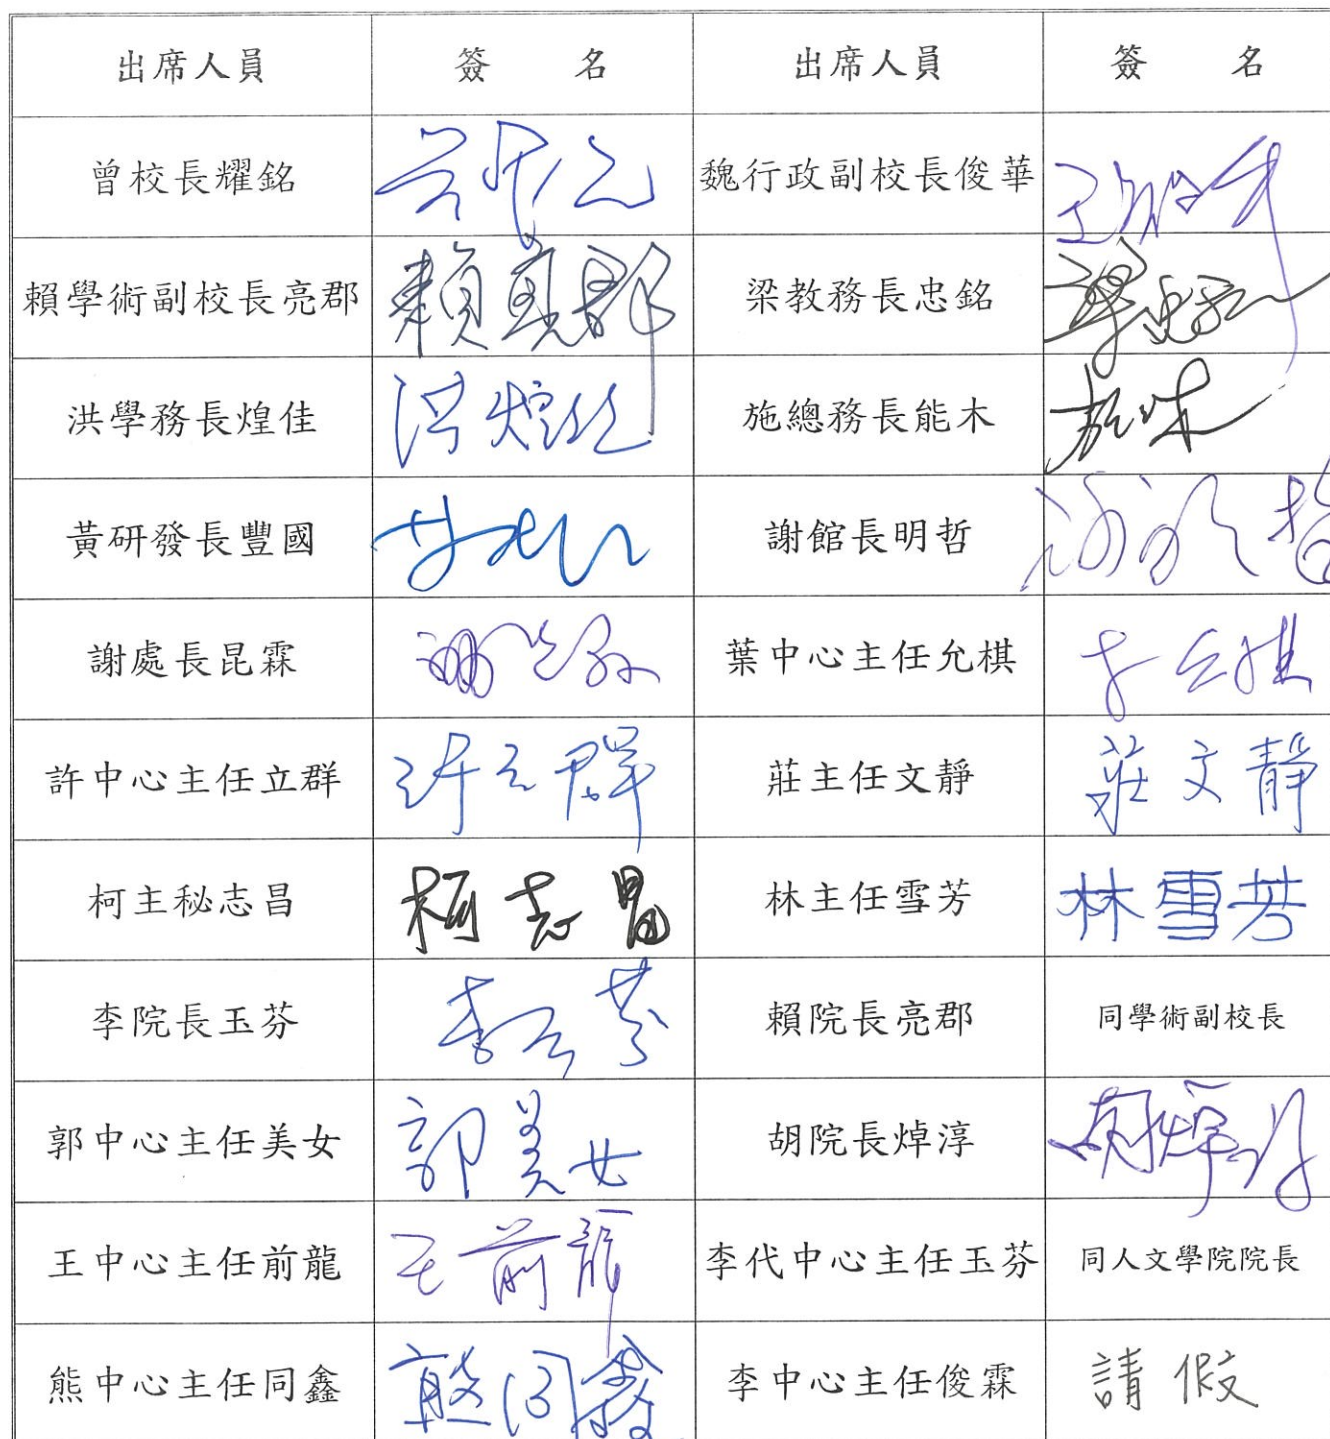 出席人員 簽 名 出席人員 簽 名
曾校長耀銘 魏行政副校長俊華
賴學術副校長亮郡 賴亮郡 梁教務長忠銘
洪學務長煌佳 洪煌佳 施總務長能木
黃研發長豐國 謝館長明哲
謝處長昆霖 葉中心主任允棋
許中心主任立群 許立群 莊主任文靜 莊文靜
柯主秘志昌 柯志昌 林主任雪芳 林雪芳
李院長玉芬 李玉芬 賴院長亮郡 同學術副校長
郭中心主任美女 郭美女 胡院長焯淳 胡焯淳
王中心主任前龍 王前龍 李代中心主任玉芬 同人文學院院長
熊中心主任同鑫 熊同鑫 李中心主任俊霖 請假